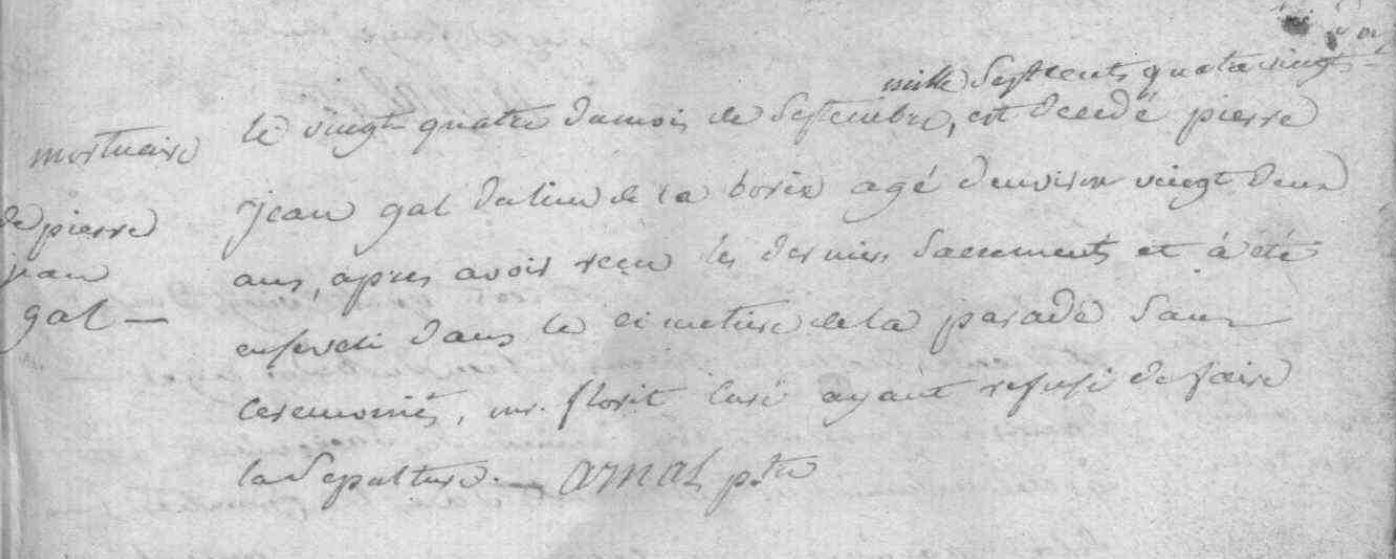 mille Sept cents quatre vingt
mortuaire
de pierre
jean
gal —
le vingt quatre dumois de Septembre, est decedé pierre
jean gal du lieu de la borie agé d'environ vingt deux
ans, apres avoir reçu les derniers Sacrements et à été
enseveli dans le cimetiere de la parade Sans
ceremonies, mr. florit Curé ayant refusé de faire
la Sepulture. — arnal ptre